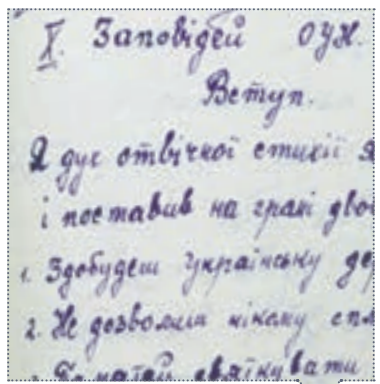 X. Заповідей ОУН.
Вступ.
Я дух отвічної стихії
і поставив на грані
1. Здобудеш Українську
2. Не дозволиш нікому